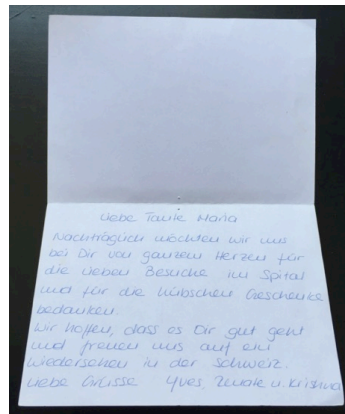 Liebe Tante Maria
Nachträglich möchten wir uns
bei Dir von ganzem Herzen für
die lieben Besuche im Spital
und für die hübschen Geschenke
bedanken.
Wir hoffen, dass es Dir gut geht
und freuen uns auf ein
Wiedersehen in der Schweiz.
Liebe Grüsse Yves, u. Krishna